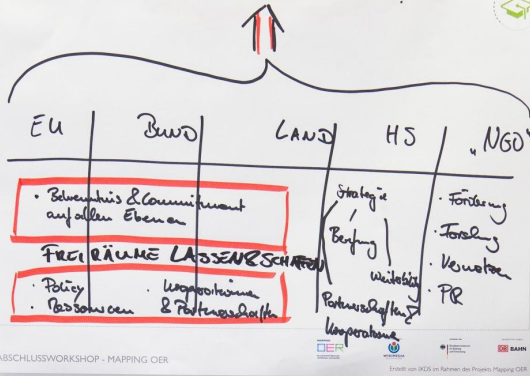 EU BUND LAND HS „NGO"
· Bekenntnis & Commitment
auf allen Ebenen
FREIRÄUME LASSEN & SCHAFFEN
· Policy · Kooperationen
· Ressourcen & Partnerschaften
Strategie
Berufung
Weiterbildg
Partnerschaften &
Kooperationen
· Förderung
· Forschung
· Vernetzen
· PR
ABSCHLUSSWORKSHOP - MAPPING OER
OER
WIKIMEDIA
BAHN
Erstellt von IKOS im Rahmen des Projekts Mapping OER